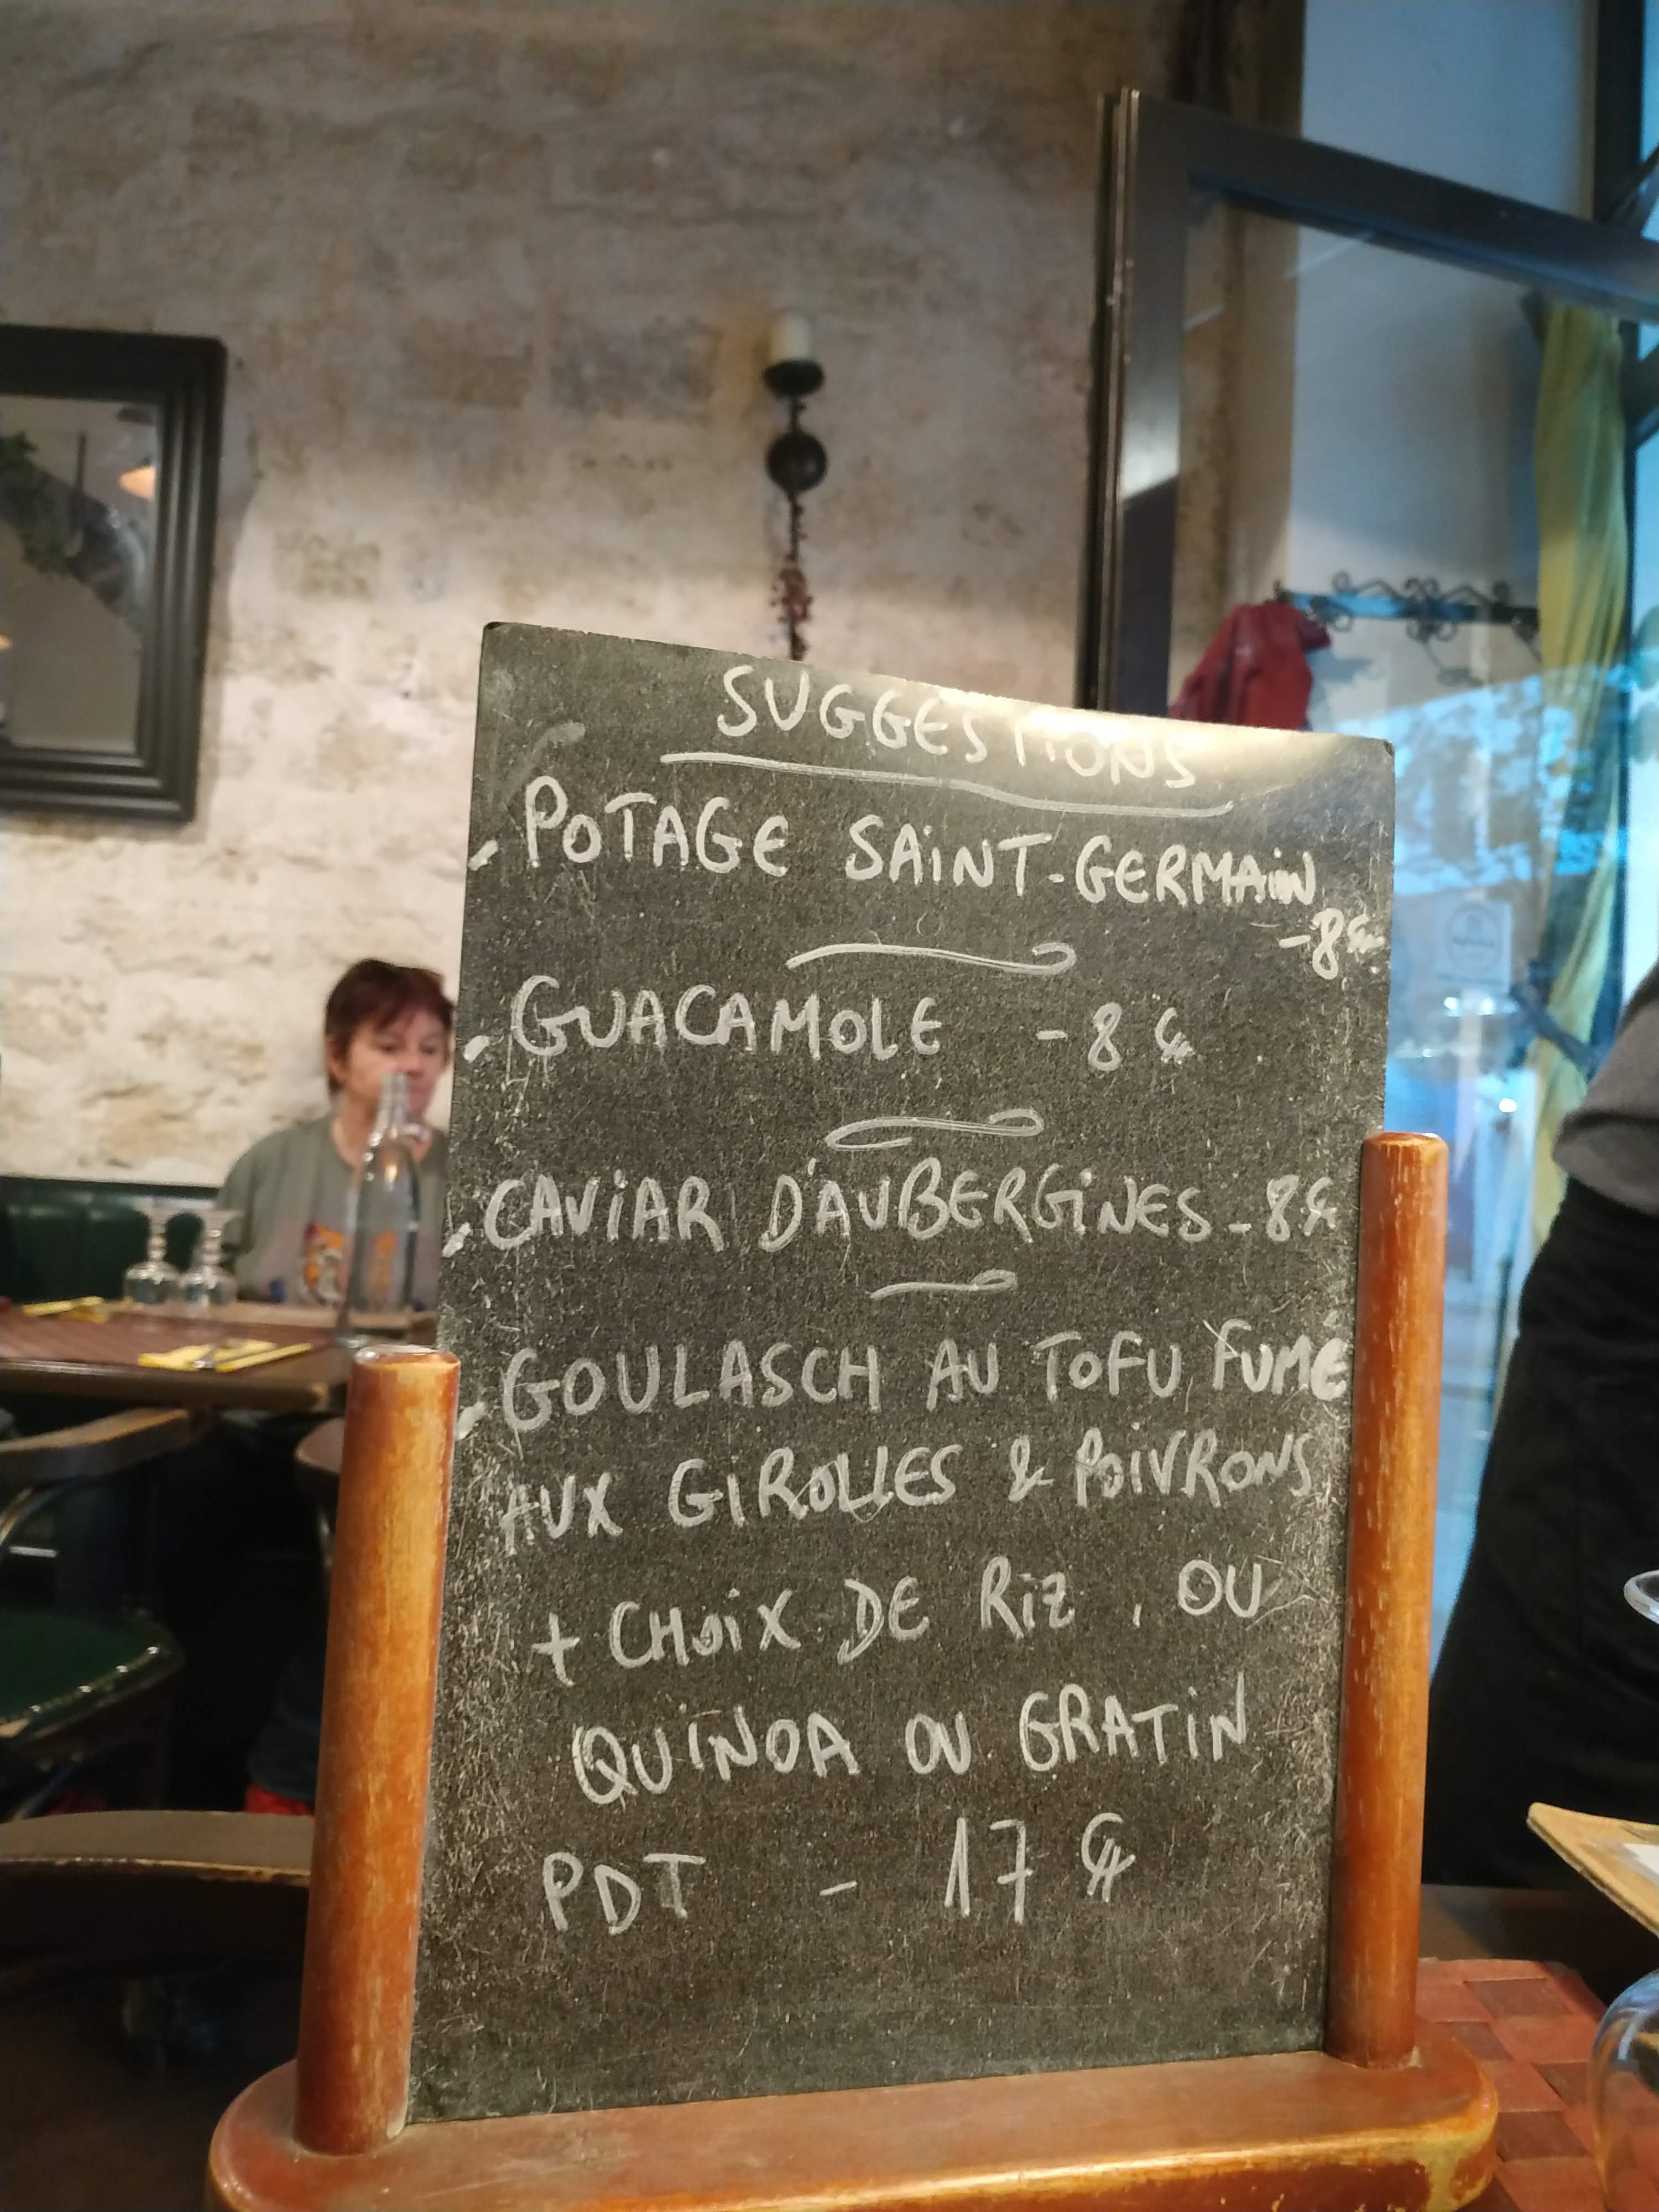 SUGGESTIONS
- POTAGE SAINT-GERMAIN
- 8€
- GUACAMOLE - 8 €
- CAVIAR D'AUBERGINES - 8€
- GOULASCH AU TOFU FUMÉ
AUX GIROLLES & POIVRONS
+ CHOIX DE RIZ, OU
QUINOA OU GRATIN
PDT - 17 €